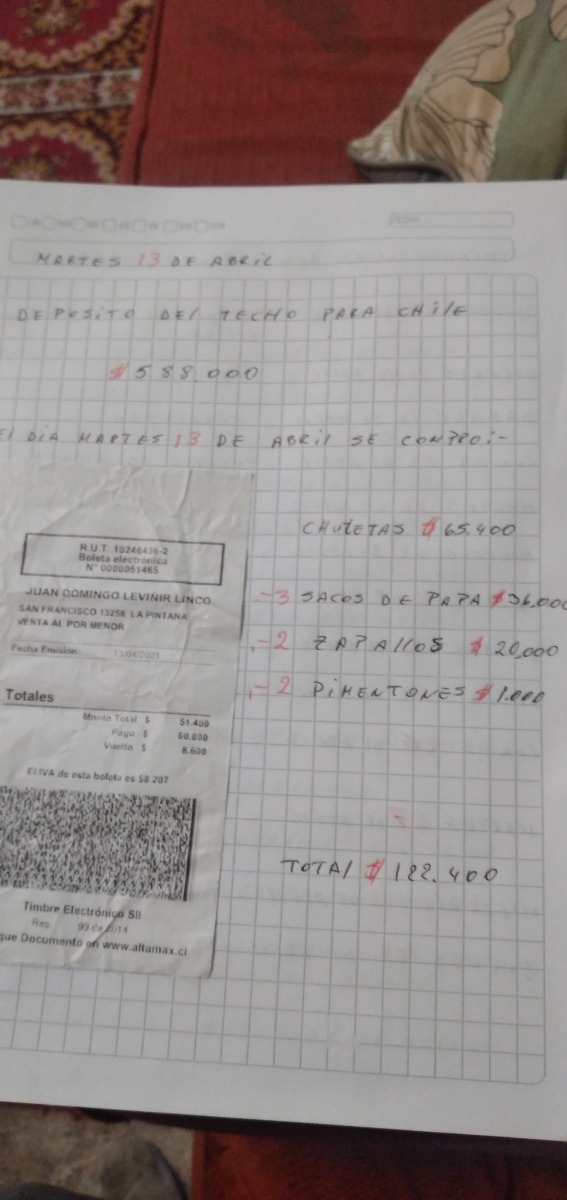 FECHA
MARTES 13 DE ABRIL
DEPOSITO DEL TECHO PARA CHILE
$ 588.000
El DIA MARTES 13 DE ABRIL SE COMPRO:-
CHULETAS $ 65.400
-3 SACOS DE PAPA $ 36.000
.-2 ZAPALLOS $ 20,000
.-2 PIMENTONES $ 1.000
TOTAL $ 122.400
R.U.T. 10246436-2
Boleta electronica
N° 0000051465
JUAN DOMINGO LEVIÑIR LINCO
SAN FRANCISCO 13258 LA PINTANA
VENTA AL POR MENOR
Fecha Emision: 13/04/2021
Totales
Monto Total $ 51.400
Pago $ 60.000
Vuelto $ 8.600
El IVA de esta boleta es $8.207
Timbre Electrónico SII
Res. 99 de 2014
que Documento en www.altamax.cl